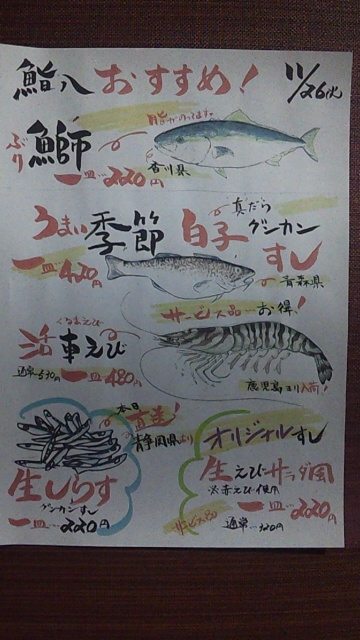 鮨八 おすすめ! 11/26火
脂がのってます
ぶり 鰤 一皿…220円 香川県
うまい季節 白子 真だら グンカンすし
一皿…420円 青森県
サービス品…お得!
くるまえび
活車えび
通常…530円 一皿…480円 鹿児島より入荷!
本日直送!
静岡県より
生しらす
グンカンすし
一皿…220円
オリジナルすし
生えびサラダ風
※赤えび使用
一皿…220円
サービス品 通常…320円